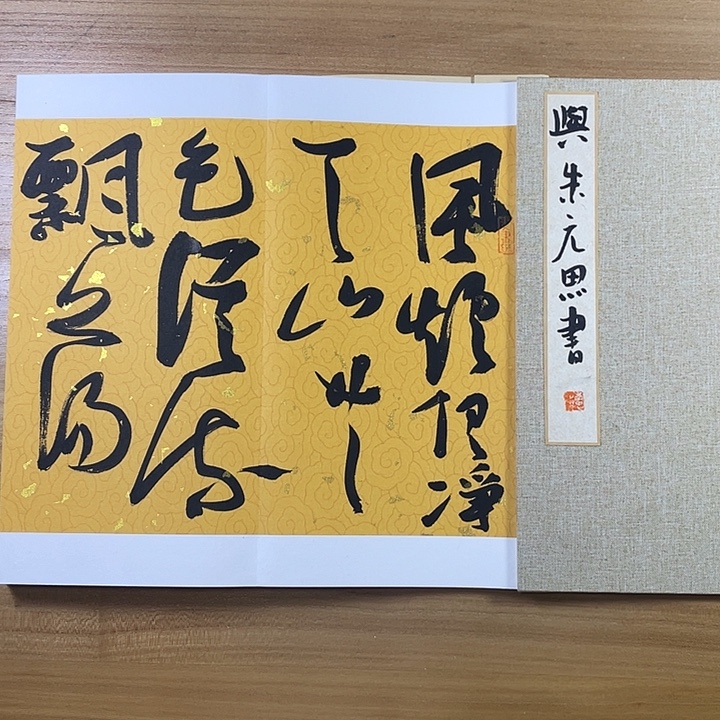 與朱元思書
風煙俱淨
天山共
色從流
飄蕩